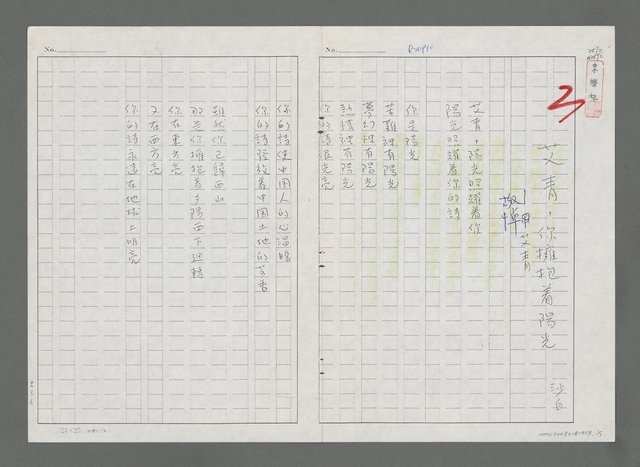 No.
R20910
艾青，你擁抱着陽光
沙白
悼
艾青
艾青，陽光照耀着你
陽光照耀着你的詩
你是陽光
苦難裡有陽光
夢幻裡有陽光
熱情裡有陽光
你的詩在光亮
No.
你的詩使中國人的心溫暖
你的詩發放着中國土地的芳香
雖然你已歸西山
那是你擁抱着夕陽西下迴轉
你在東方亮
又在西方亮
你的詩永遠在地球上明亮